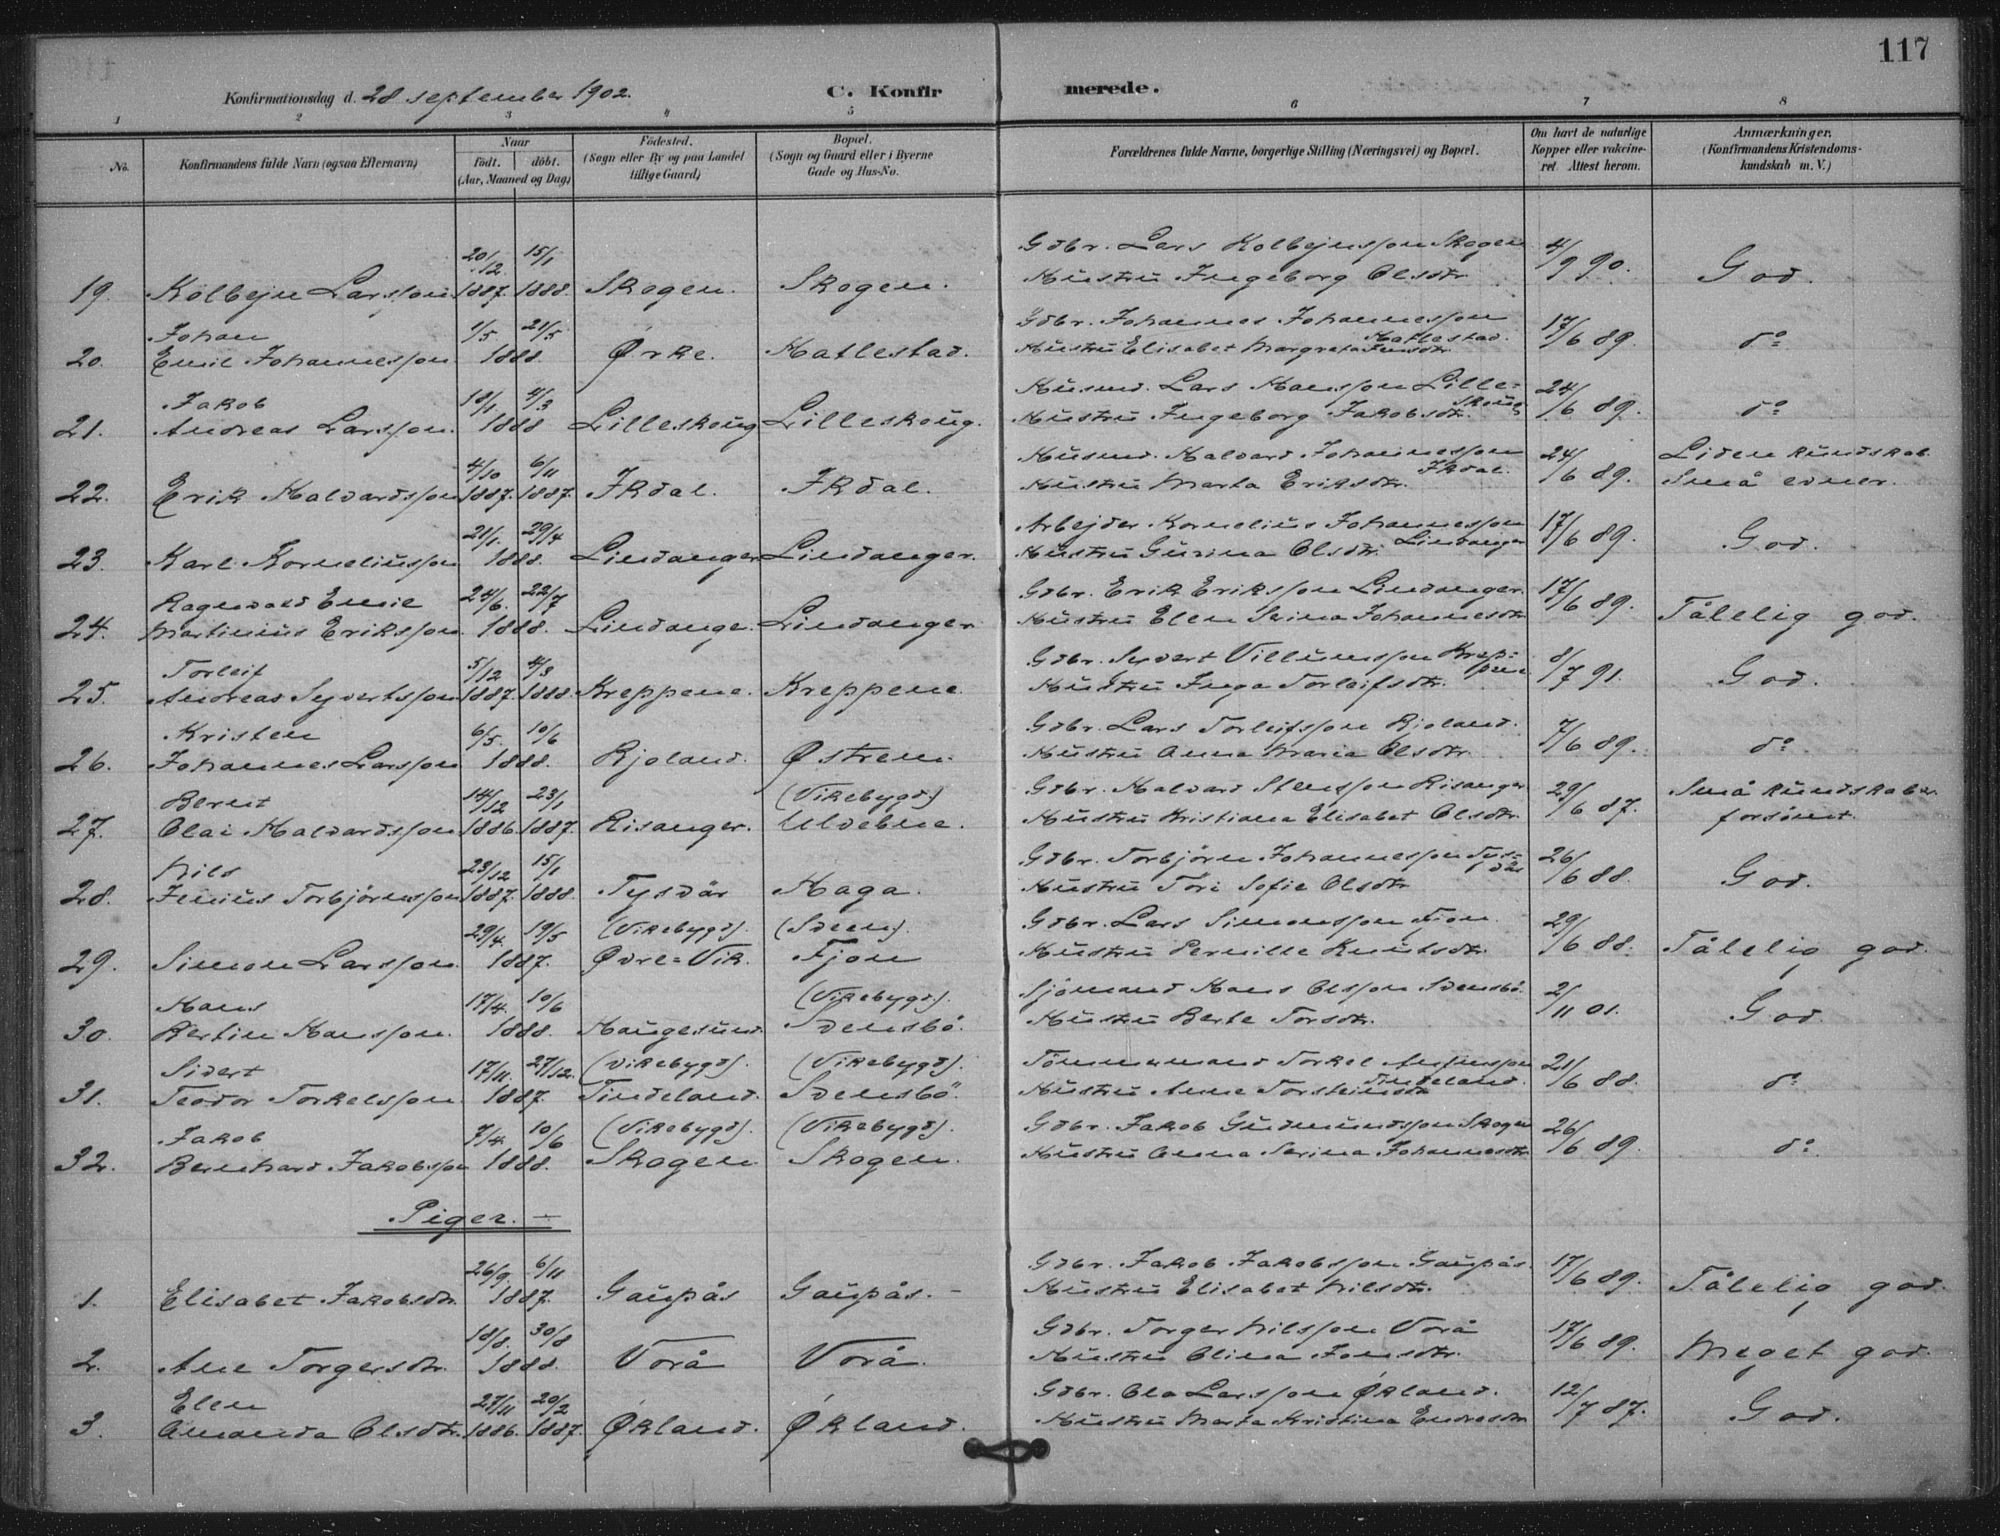 117
Konfirmationsdag d. 28 september 1902. C. Konfirmerede.
1 2 3 4 5 6 7 8
No. Konfirmandens fulde Navn (ogsaa Efternavn) Naar født. døbt. (Aar, Maaned og Dag) Fødested. (Sogn eller By og paa Landet tillige Gaard) Bopæl. (Sogn og Gaard eller i Byerne Gade og Hus-No. Forældrenes fulde Navne, borgerlige Stilling (Næringsvei) og Bopæl. Om havt de naturlige Kopper eller vakcineret. Attest herom. Anmærkninger. (Konfirmandens Kristendomskundskab m. V.)
19. Kolbejn Larsson 20/12 1887. 15/1 1888. Skogen. Skogen. Gdbr. Lars Kolbejnsson Skogen Hustru Ingeborg Olsdtr. 4/9 90. God.
20. Johan Emil Johannesson 1/5 21/5 1888. Ørke. Hatlestad. Gdbr. Johannes Johannesson Hatlestad. Hustru Elisabet Margreta Jensdtr. 17/6 89. do
21. Jakob Andreas Larsson. 18/1 4/3 1888 Lilleskoug Lilleskoug. Husmd. Lars Hansson Lilleskoug Hustru Ingeborg Jakobsdtr. 24/6 89. do
22. Erik Halvardsson 4/10 1887. 6/11 1887. Ikdal. Ikdal. Husmd. Halvard Johannesson Ikdal. Hustru Marta Eriksdtr. 24/6 89. Liden kundskab Små evner.
23. Karl Korneliusson 21/1. 29/4 1888. Lindanger Lindanger. Arbejder Kornelius Johannesson Lindanger Hustru Gurina Olsdtr. 17/6 89. God.
24. Ragnvald Emil Martinius Eriksson. 24/6. 22/7 1888. Lindange. Lindanger Gdbr. Erik Eriksson Lindanger. Hustru Elen Serina Johannesdtr 17/6 89. Tålelig god.
25. Torleif Andreas Sejvertsson 5/12 1887. 4/3 1888. Kreppene. Kreppene. Gdbr. Syvert Villumsson Kreppene Hustru Inga Torleifsdtr. 8/7 91. God.
26. Kristen Johannes Larsson 6/5. 10/6 1888. Rjoland. Østrem. Gdbr. Lars Torleifsson Rjoland. Hustru Anna Maria Olsdtr. 7/6 89. do
27. Bernt Olai Halvardsson 14/12 1886. 23/1 1887. Risanger. (Vikebygd) Ulvebne. Gdbr. Halvard Stensson Risanger Hustru Kristiana Elisabet Olsdtr. 29/6 87. Små kundskaber. forsømt.
28. Nils Junius Torbjørnsson 23/12 1887. 15/1 1888. Tysvär Haga. Gdbr. Torbjørn Johannesson Tysvär Hustru Tori Sofie Olsdtr 26/6 88. God.
29. Simon Larsson. 29/4. 19/5 1887. (Vikebygd). Øvre=Vik. (Sveen). Fjon Gdbr. Lars Simonsson Fjon. Hustru Pernille Knutsdtr. 29/6 88. Tålelig god.
30. Hans Kertin Hansson. 17/4. 10/6 1888. Haugesund. (Vikebygd). Svensbö. Sjömand Hans Olsson Svensbö. Hustru Berte Torsdtr. 2/11 01. God.
31. Sivert Teodor Torkelsson. 17/11. 27/12. 1887. (Vikebygd). Tindeland. (Vikebygd). Svensbö. Tömmermand Torkel Tindeland. Hustru Anne Torsteinsdtr 21/6 88. do
32. Jakob Bernhard Jakobsson 7/4. 10/6 1888. (Vikebygd). Skogen. (Vikebygd). Skogen. Gdbr. Jakob Gudmundsson Skogen Hustru Anna Serina Johannesdtr. 26/6 89. do
Piger. —
1. Elisabet Jakobsdtr. 26/9. 6/11 1887. Gaupås Gaupås. - Gdbr. Jakob Jakobsson Gaupås. Hustru Elisabet Nilsdtr. 17/6 89. Tålelig god.
2. Ane Torgersdtr. 18/8. 30/8 1888. Vorå Vorå. Gdbr. Torger Nilsson Vorå Hustru Olina Jonsdtr. 17/6 89. Meget god.
3. Elen Amanda Olsdtr. 27/11 1886. 20/2 1887. Økland. Økland. Gdbr. Ola Larsson Økland. Hustru Marta Kristina Endresdtr 12/7 87. God.